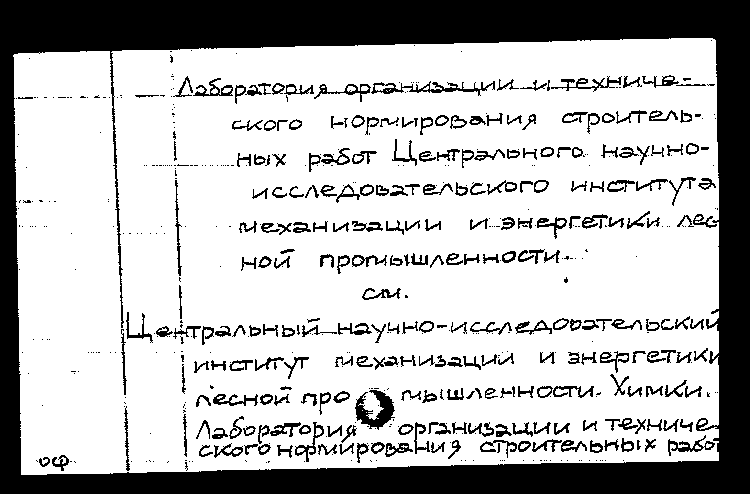 Лаборатория организации и техниче-
ского нормирования строитель-
ных работ Центрального научно-
исследовательского института
механизации и энергетики лес
ной промышленности.
см.
Центральный научно-исследовательский
институт механизации и энергетики
лесной промышленности. Химки.
Лаборатория организации и техниче-
ского нормирования строительных работ
оф